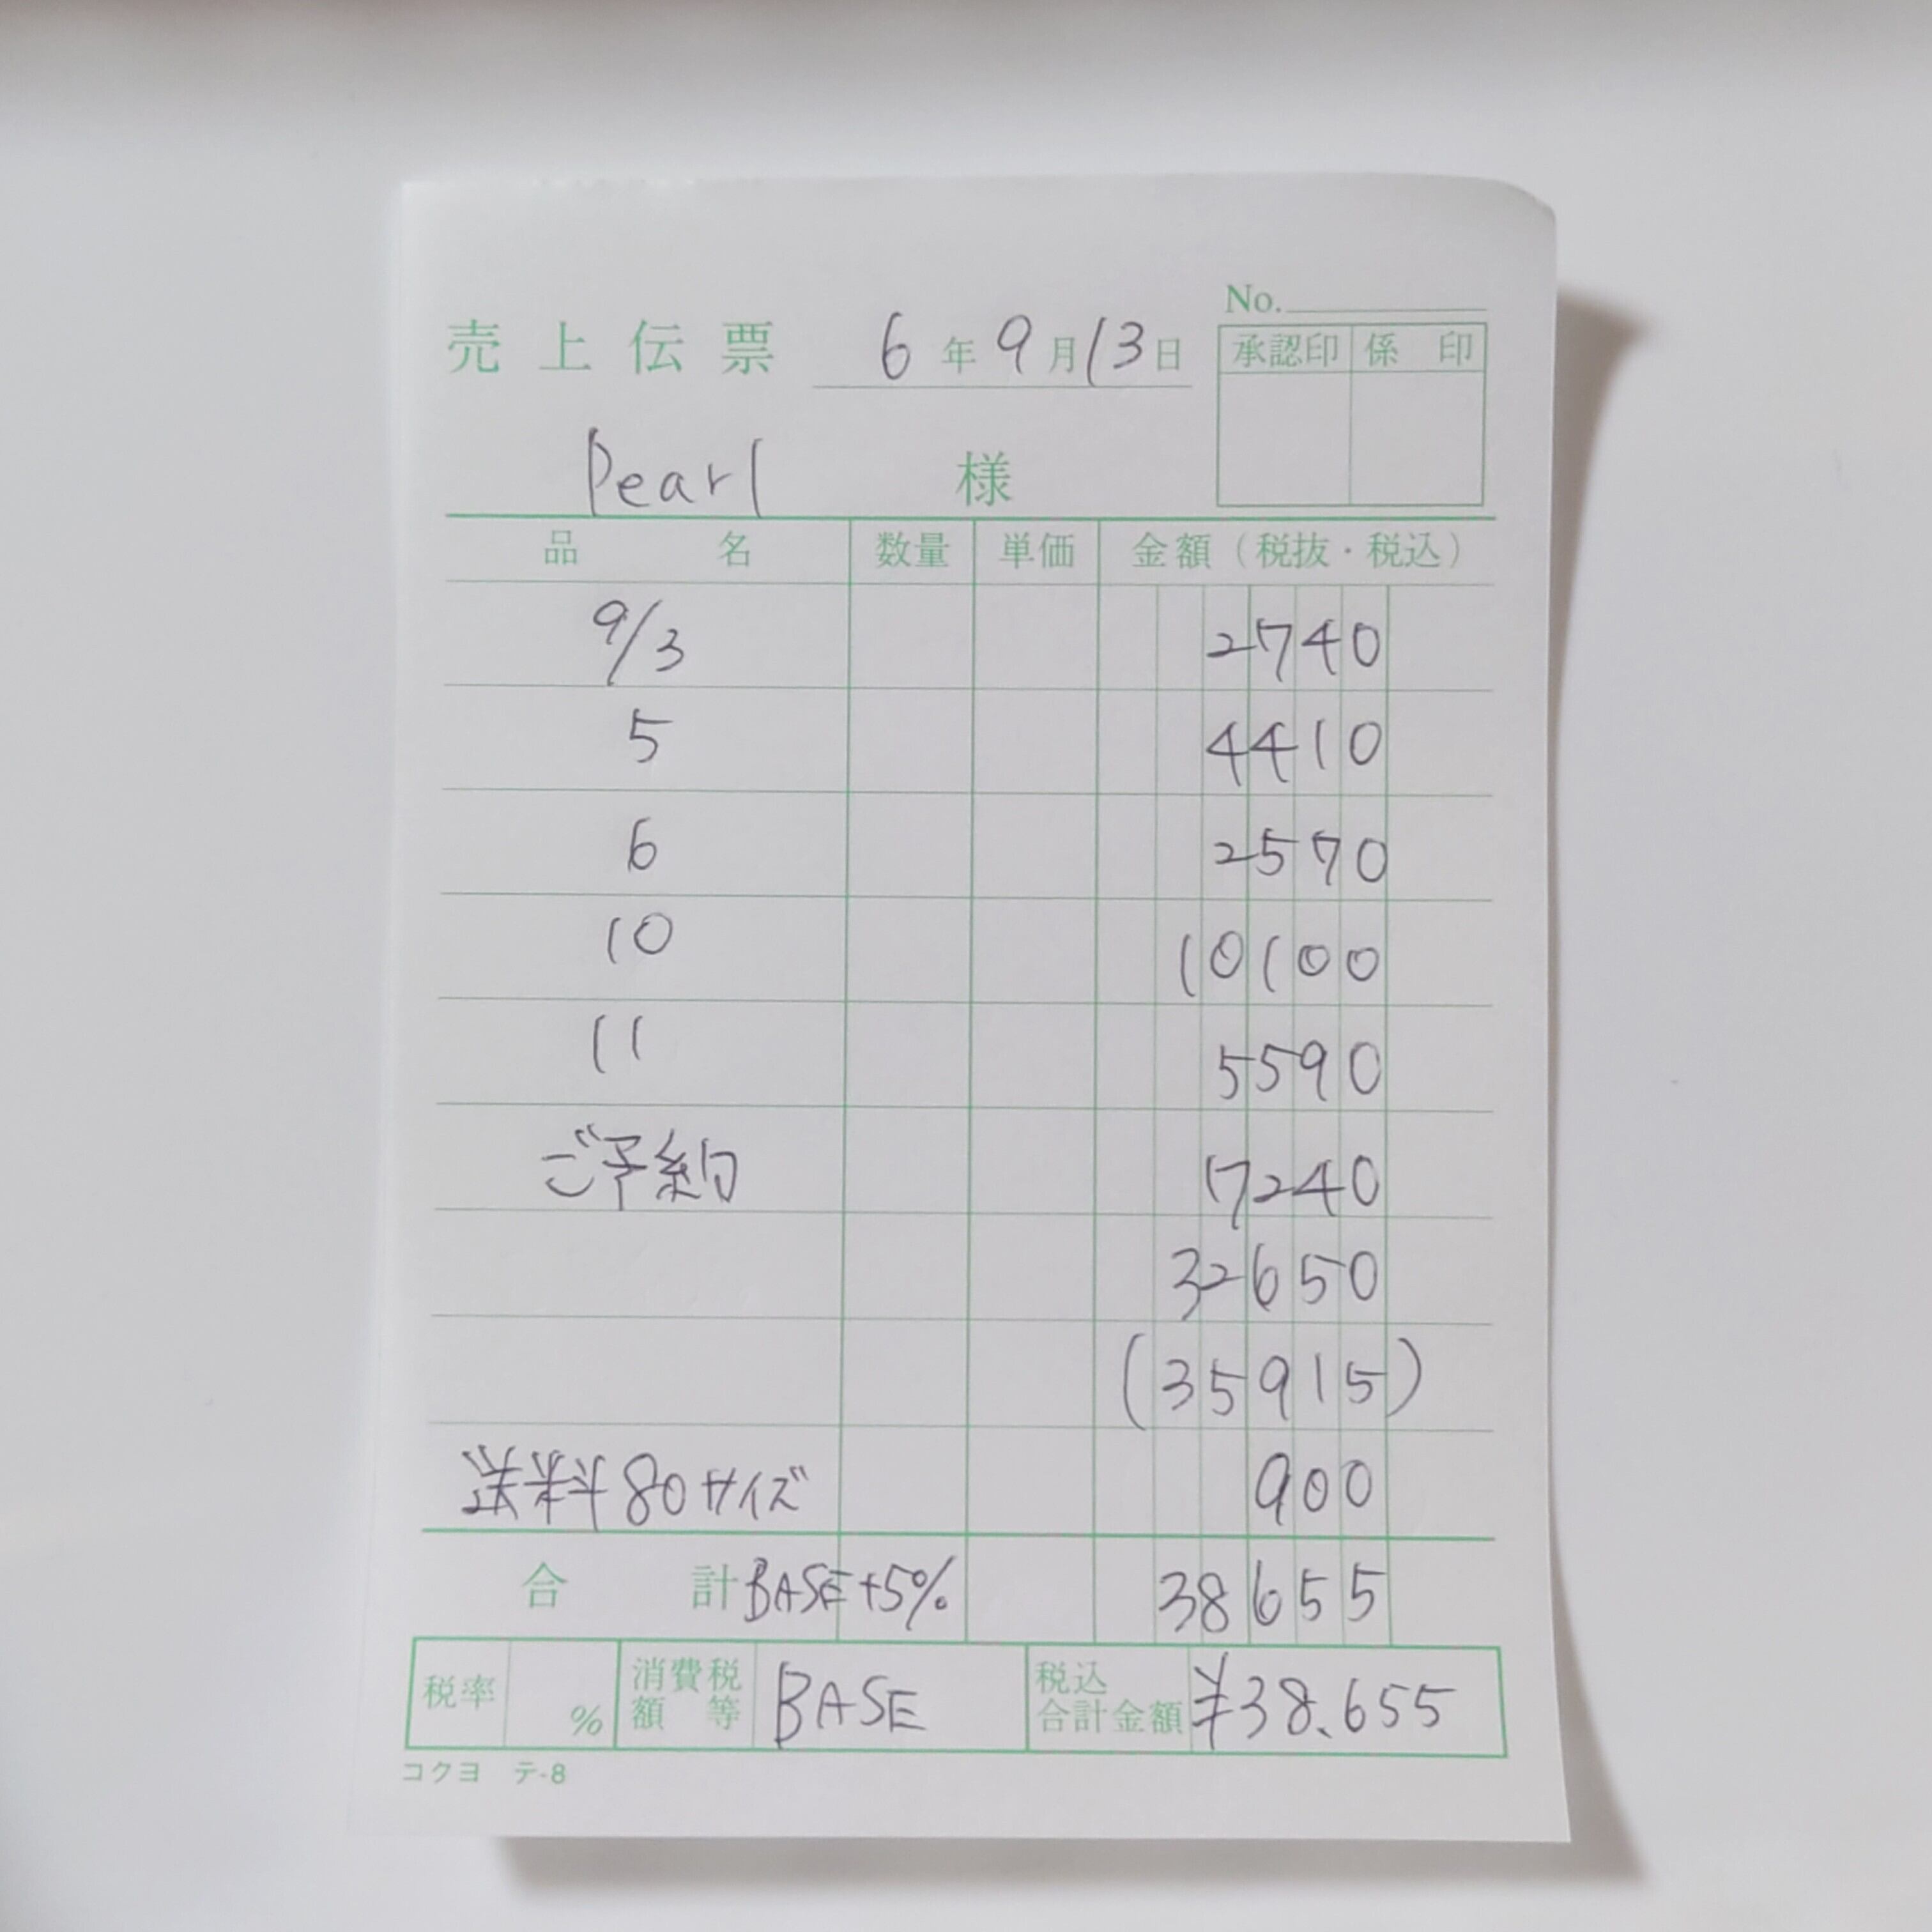 No.
売上伝票 6年9月13日
承認印 係印
Pearl 様
品名 数量 単価 金額（税抜・税込）
9/3 2740
5 4410
6 2570
10 10100
11 5590
ご予約 7240
32650
(35915)
送料80サイズ 900
合計 BASE+5% 38655
税率 % 消費税額等 BASE 税込合計金額 ¥38.655
コクヨ テ-8